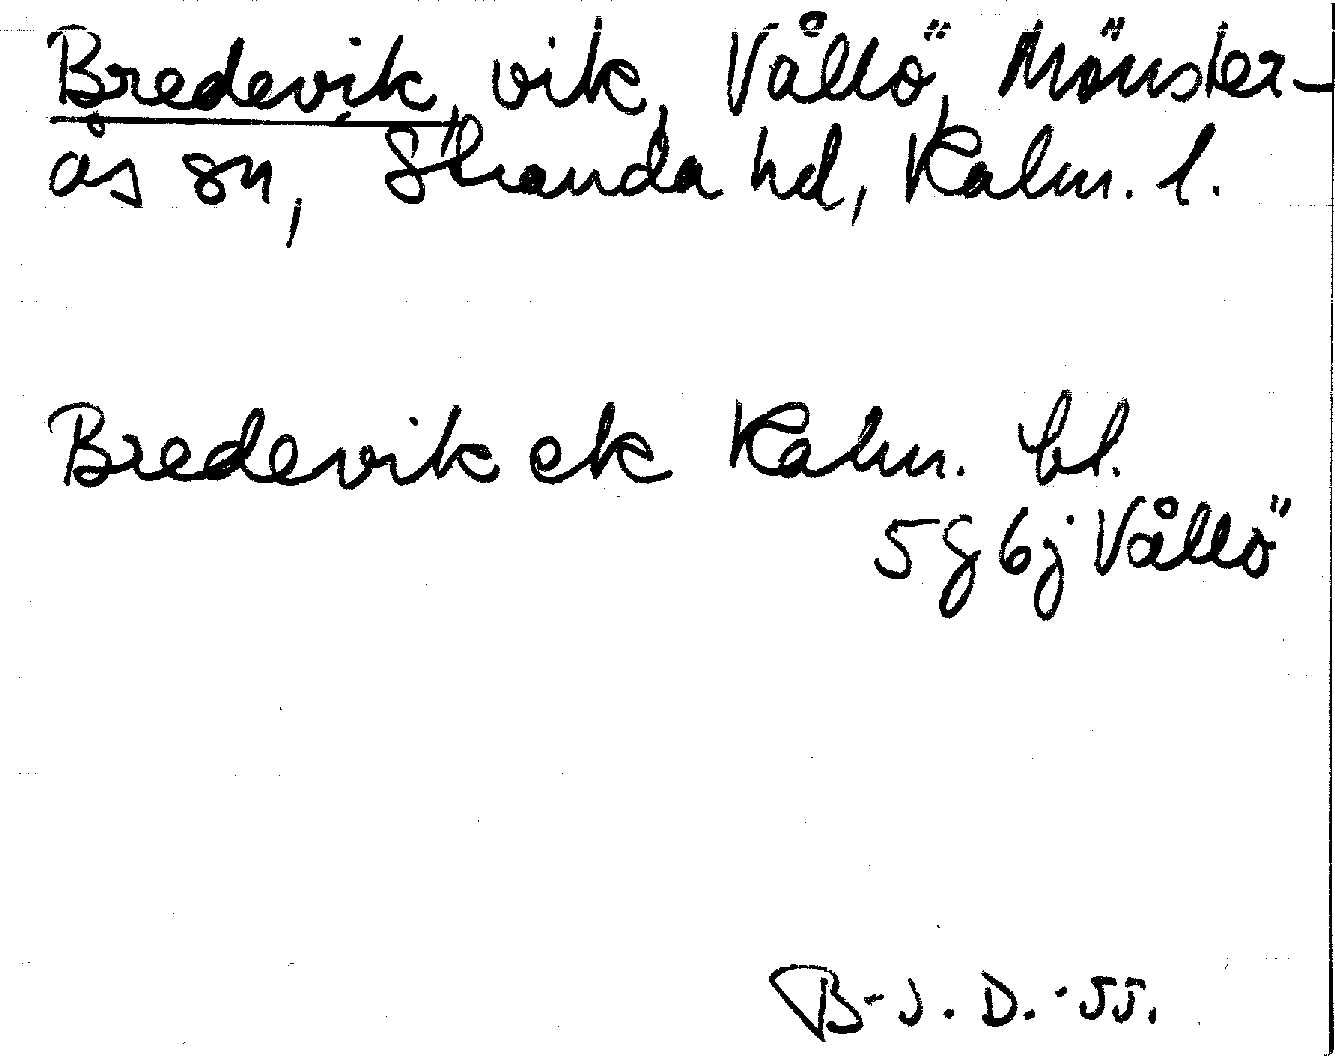 Bredevik, vik, Vållö, Mönster-
ås sn, Stranda hd, Kalm. l.
Bredevik ek Kalm. bl.
5g6j Vållö
B-J.D.-55.